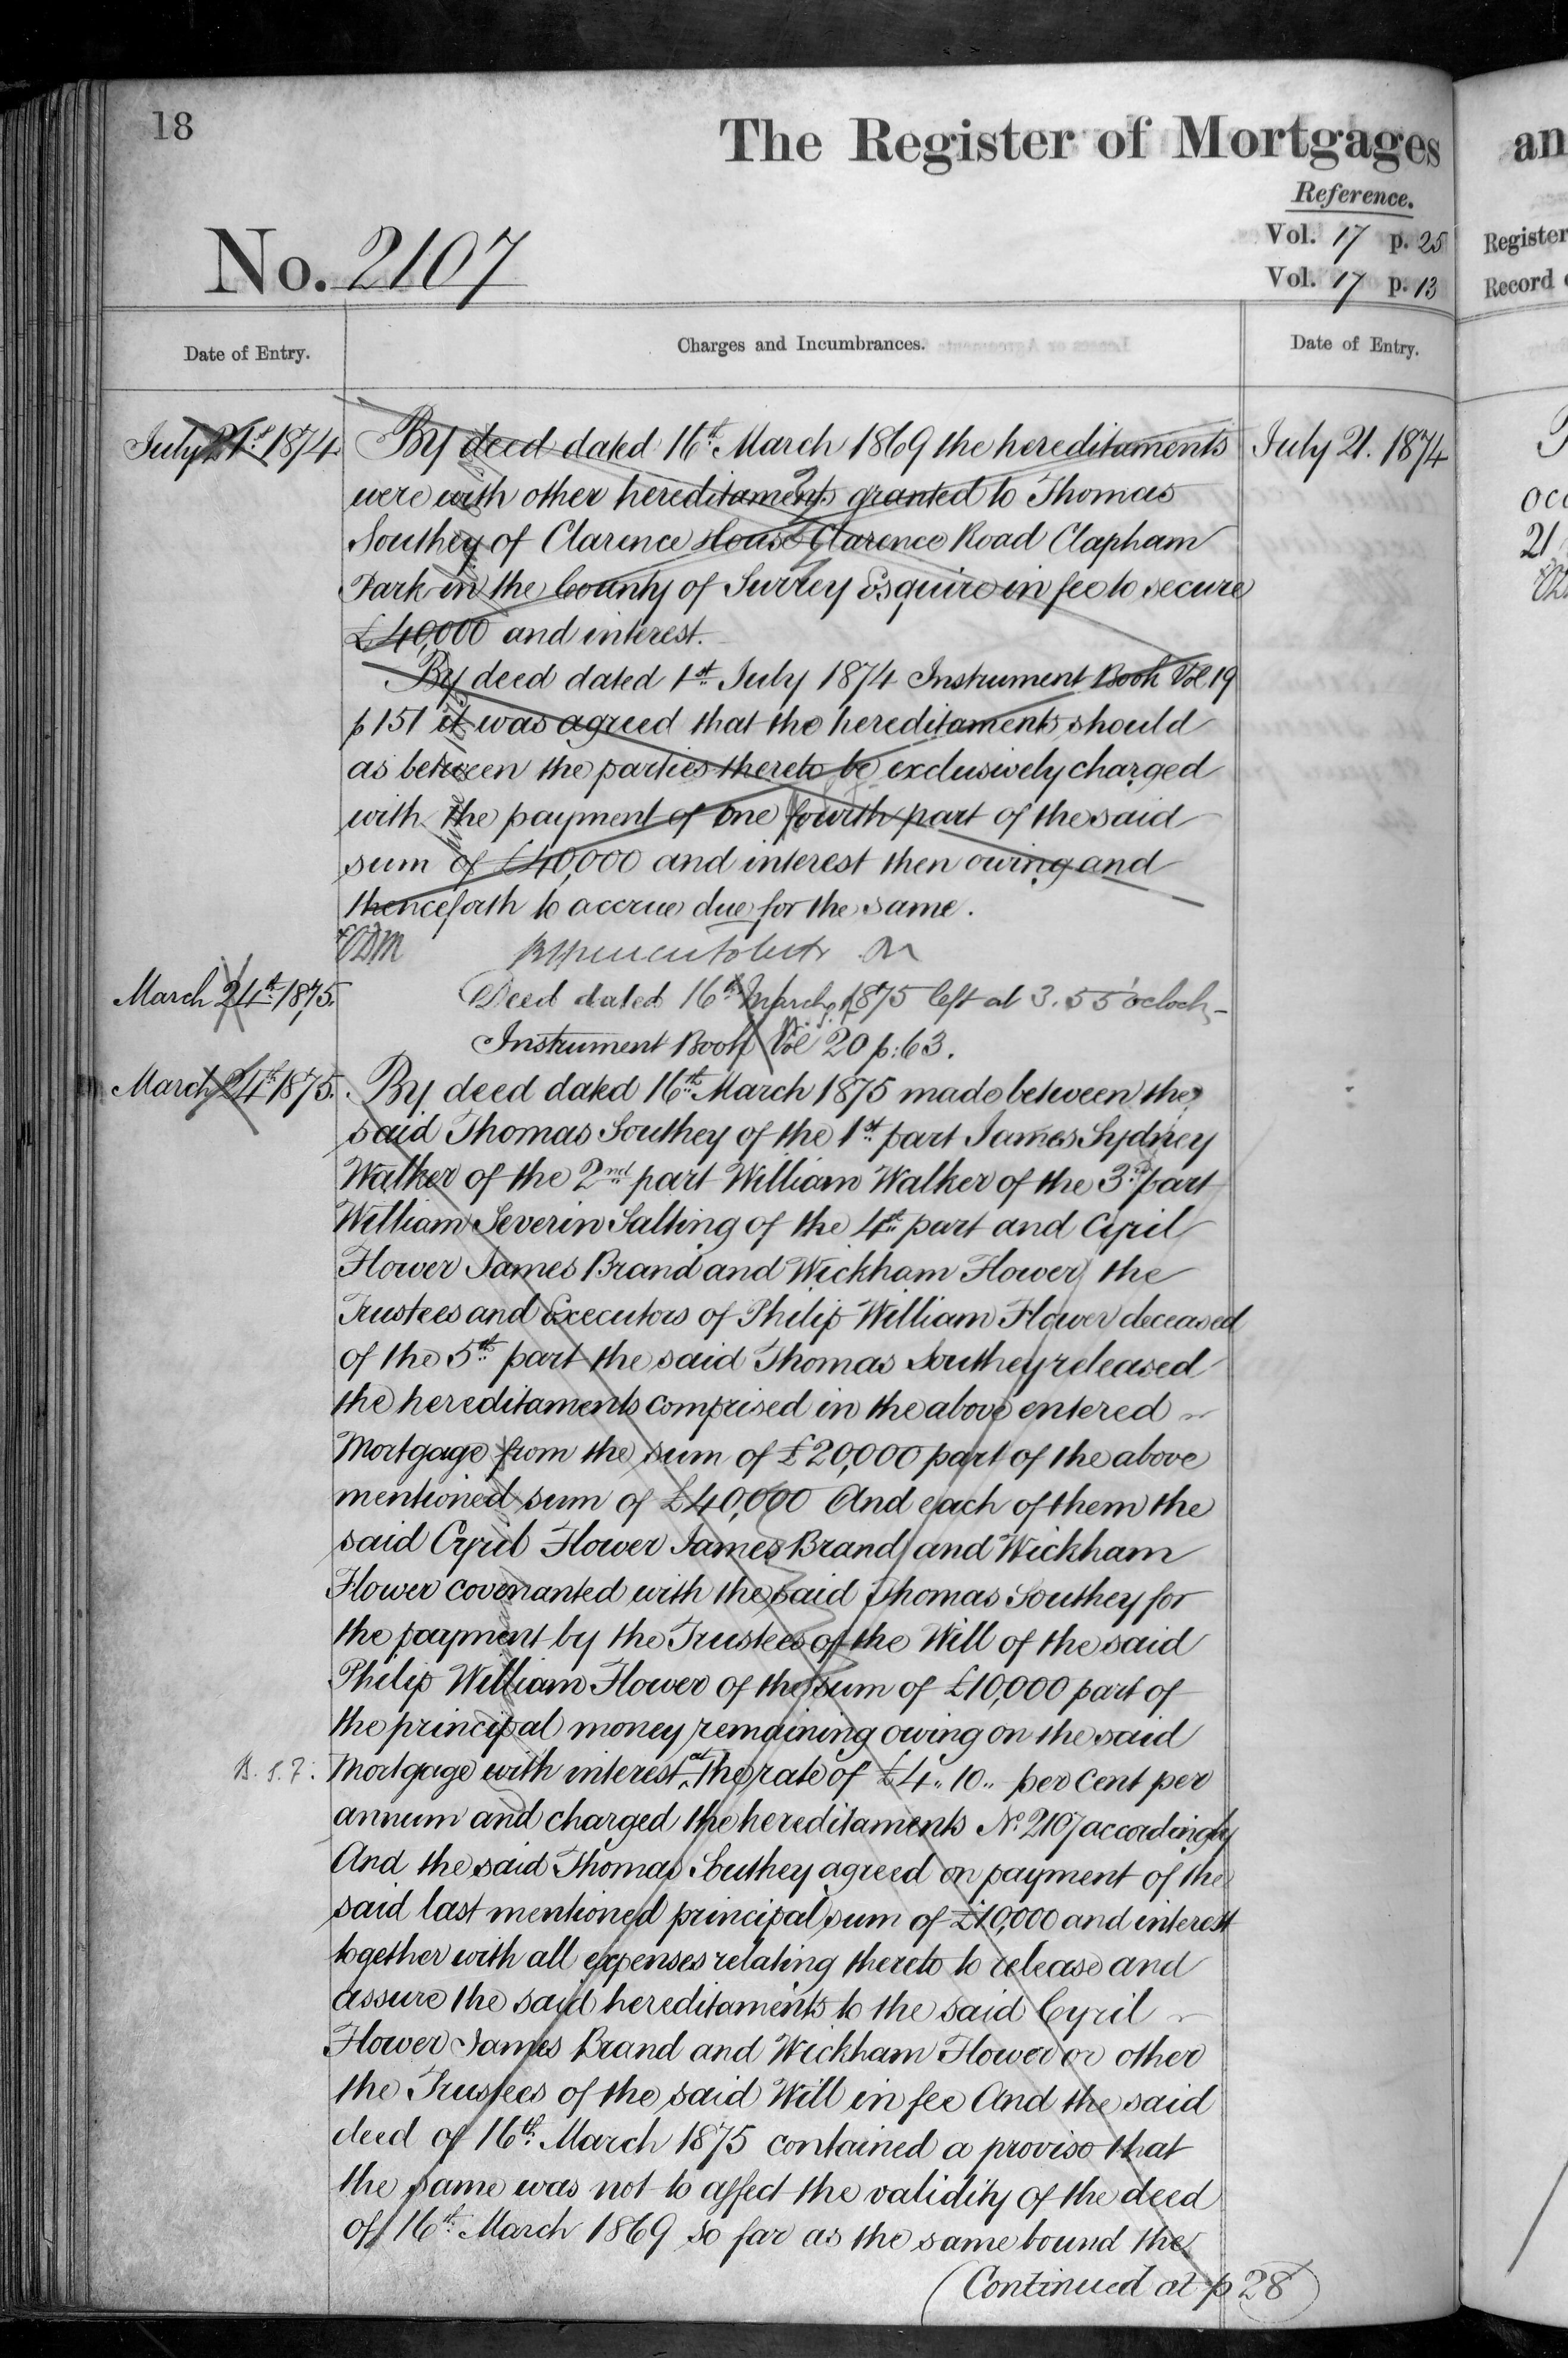 18
The Register of Mortgages
an
Reference.
No. 2107
Vol. 17 p. 25
Register
Vol. 17 p. 13
Record
Date of Entry.
Charges and Incumbrances.
Date of Entry.
July 21st 1874
By deed dated 16th March 1869 the hereditaments
July 21. 1874
were with other hereditaments granted to Thomas
Southey of Clarence House Clarence Road Clapham
Park in the County of Surrey Esquire in fee to secure
£40,000 and interest.
By deed dated 1st July 1874 Instrument Book Vol 19
p 151 it was agreed that the hereditaments should
as between the parties thereto be exclusively charged
with the payment of one fourth part of the said
sum of £40,000 and interest then owing and
thenceforth to accrue due for the same.
March 24th 1875.
Deed dated 16th March 1875 left at 3.55 o'clock
Instrument Book Vol 20 p: 63.
March 24th 1875.
By deed dated 16th March 1875 made between the
said Thomas Southey of the 1st part James Sydney
Walker of the 2nd part William Walker of the 3rd part
William Severin Salting of the 4th part and Cyril
Flower James Brand and Wickham Flower the
Trustees and Executors of Philip William Flower deceased
of the 5th part the said Thomas Southey released
the hereditaments comprised in the above entered
Mortgage from the sum of £20,000 part of the above
mentioned sum of £40,000 And each of them the
said Cyril Flower James Brand and Wickham
Flower covenanted with the said Thomas Southey for
the payment by the Trustees of the Will of the said
Philip William Flower of the sum of £10,000 part of
the principal money remaining owing on the said
Mortgage with interest at the rate of £4.. 10.. per Cent per
annum and charged the hereditaments No. 2107 accordingly
And the said Thomas Southey agreed on payment of the
said last mentioned principal sum of £10,000 and interest
together with all expenses relating thereto to release and
assure the said hereditaments to the said Cyril
Flower James Brand and Wickham Flower or other
the Trustees of the said Will in fee And the said
deed of 16th March 1875 contained a proviso that
the same was not to affect the validity of the deed
of 16th March 1869 so far as the same bound the
(Continued at p 28)